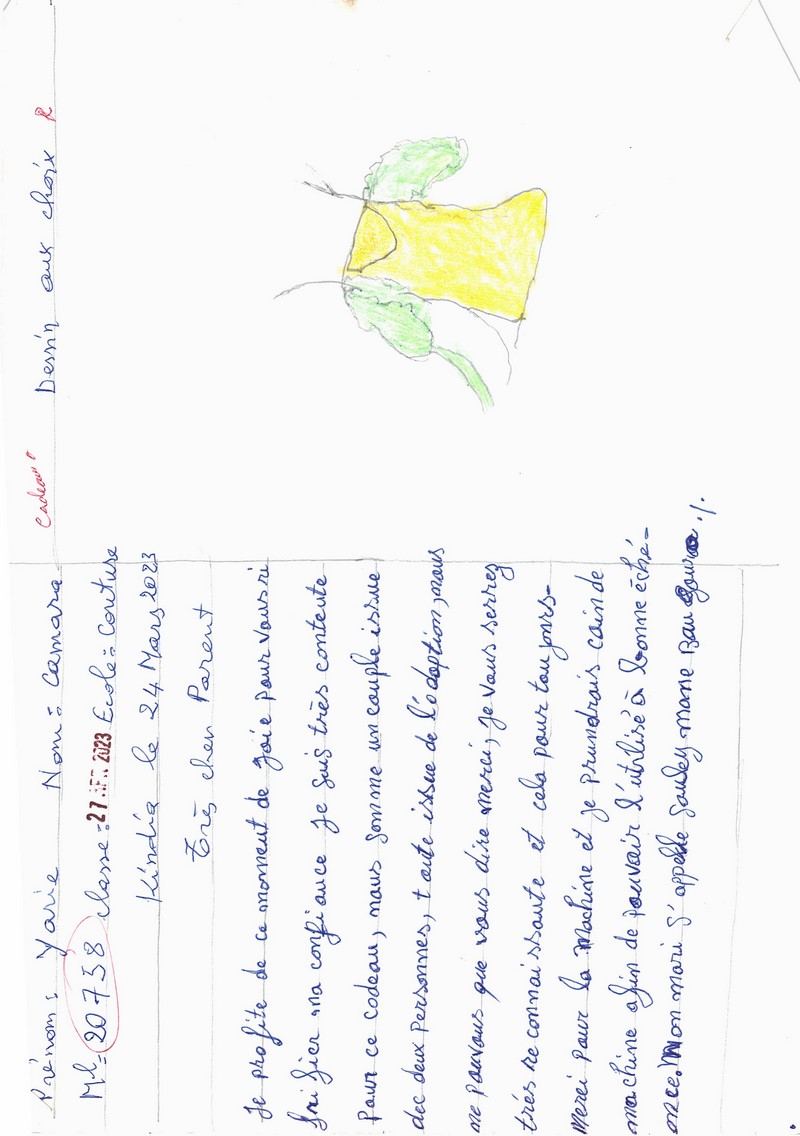 Prénom: Yarie Nom: Camara
Ml: 20758 classe: Ecole: Couture
27 AFR 2023
Kindia le 24 Mars 2023
Très cher Parent
Je profite de ce moment de joie pour vous ri
fri fier ma confiance je suis très contente
pour ce codeau, nous somme un couple issue
dec deux personnes, toute issue de l'adoption, nous
ne pouvons que vous dire merci, je vous serrez
très reconnaissante et cela pour toujours-
Merci pour la Machine et je prundrais cain de
machine afin de pouvoir l'utilisé à bonne éché-
ance. Mon mari s'appelle Souley mane ./.
Cadeau
Dessin aux choix R